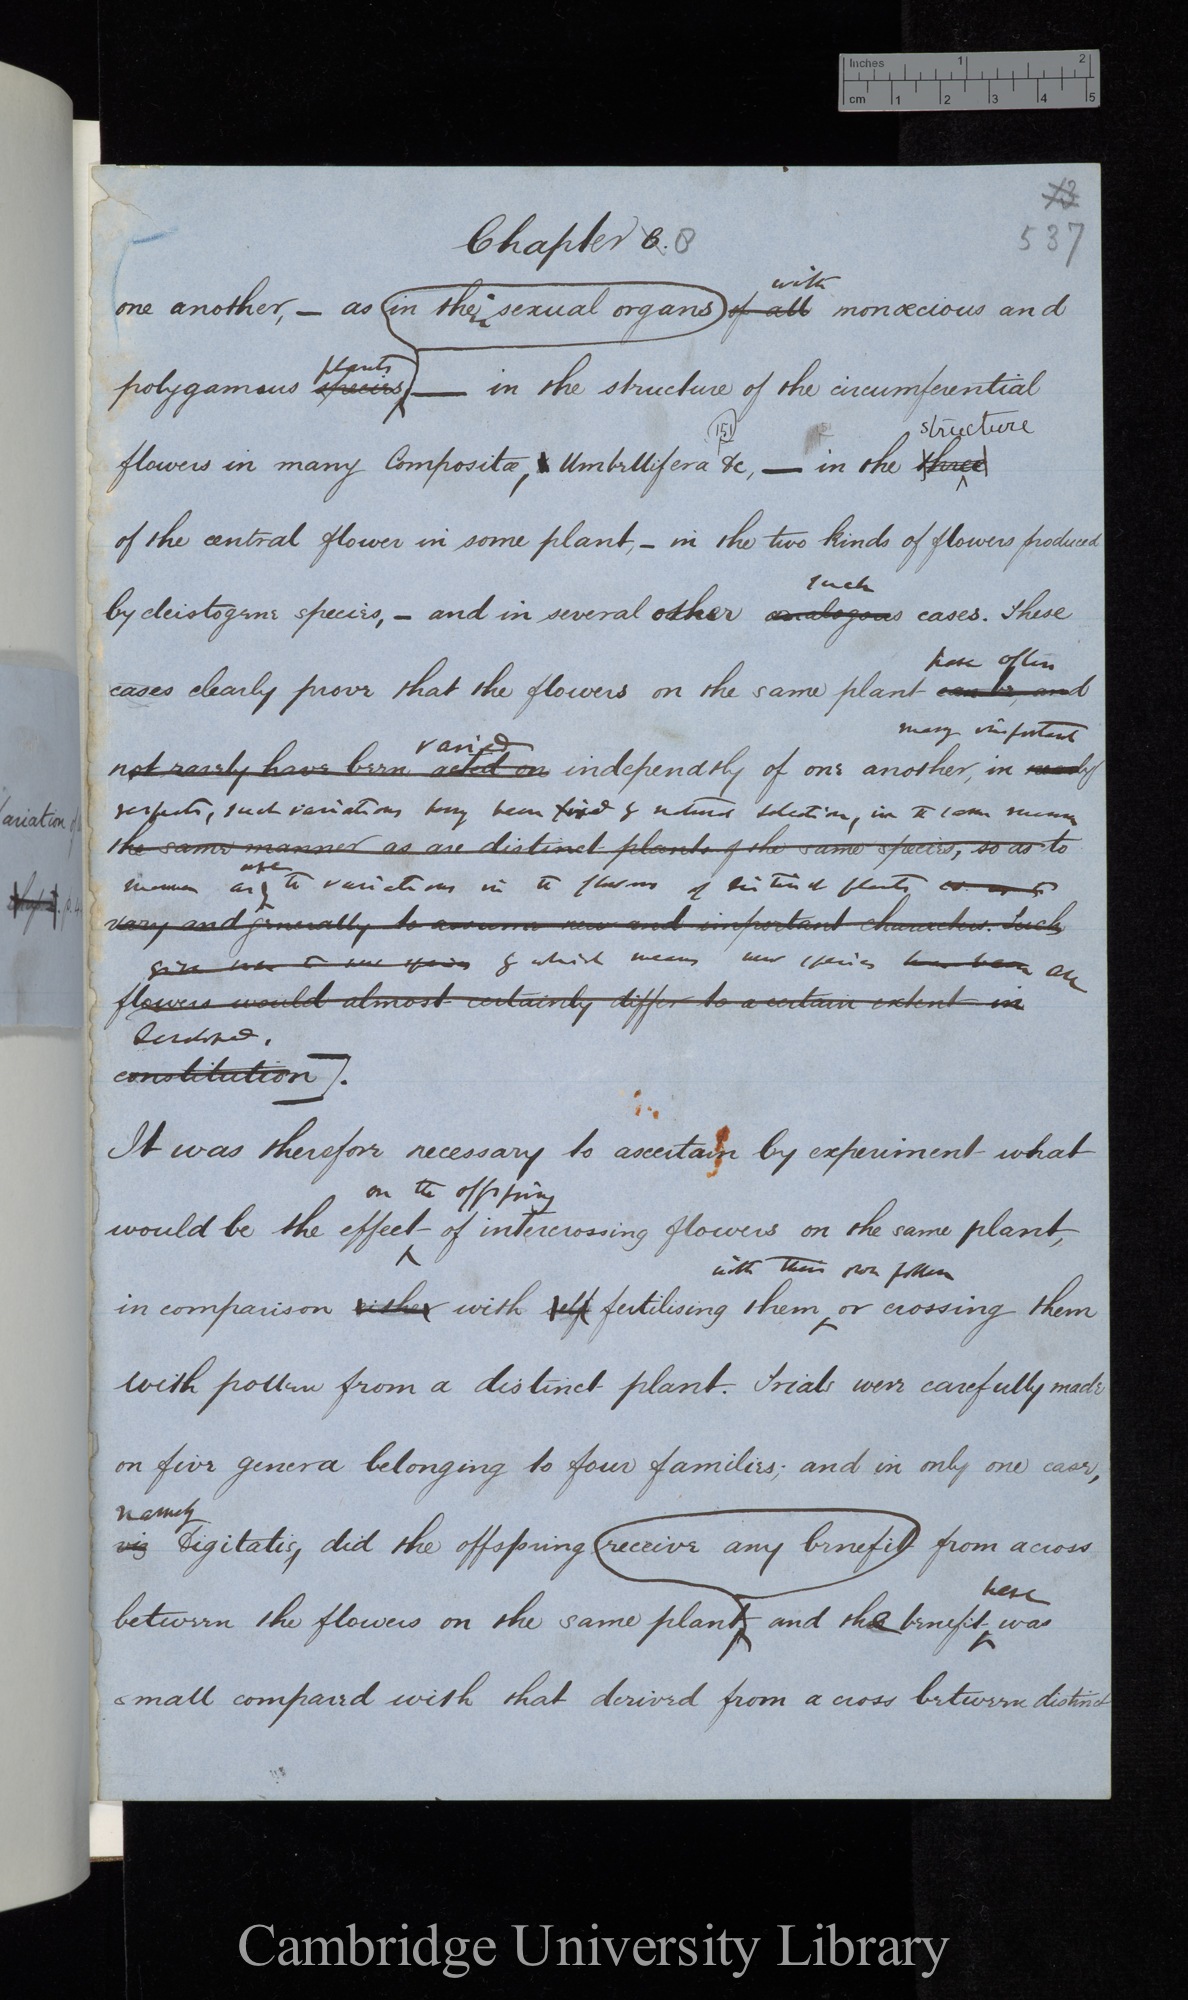 Inches 1 2
cm 1 2 3 4 5
73
537
Chapter 6. 8
with
one another, — as in their sexual organs of all monœcious and
plants
polygamous species, — in the structure of the circumferential
151 structure
flowers in many Compositæ, Umbellifera &c, — in the three
of the central flower in some plant, — in the two kinds of flowers produced
such
by cleistogene species, — and in several other analogous cases. These
have often
cases clearly prove that the flowers on the same plant can be, and
varied many important
not rarely have been acted on independtly of one another, in
respects, such variations having been fixed by natural selection, in the same manner
the same manner as are distinct plants of the same species, so as to
manner as are the variations in the flowers of distinct plants so as to
vary and generally to assume new and important characters. Such
give rise to new species by which means new species have been are
flowers would almost certainly differ to a certain extent in
developed.
constitution].
It was therefore necessary to ascertain by experiment what
on the offspring
would be the effect of intercrossing flowers on the same plant,
with their own pollen
in comparison either with self fertilising them, or crossing them
with pollen from a distinct plant. Trials were carefully made
on five genera belonging to four families; and in only one case,
namely
viz Digitalis, did the offspring receive any benefit from a cross
here
between the flowers on the same plant, and the benefit was
small compared with that derived from a cross between distinct
Variation of
Cambridge University Library